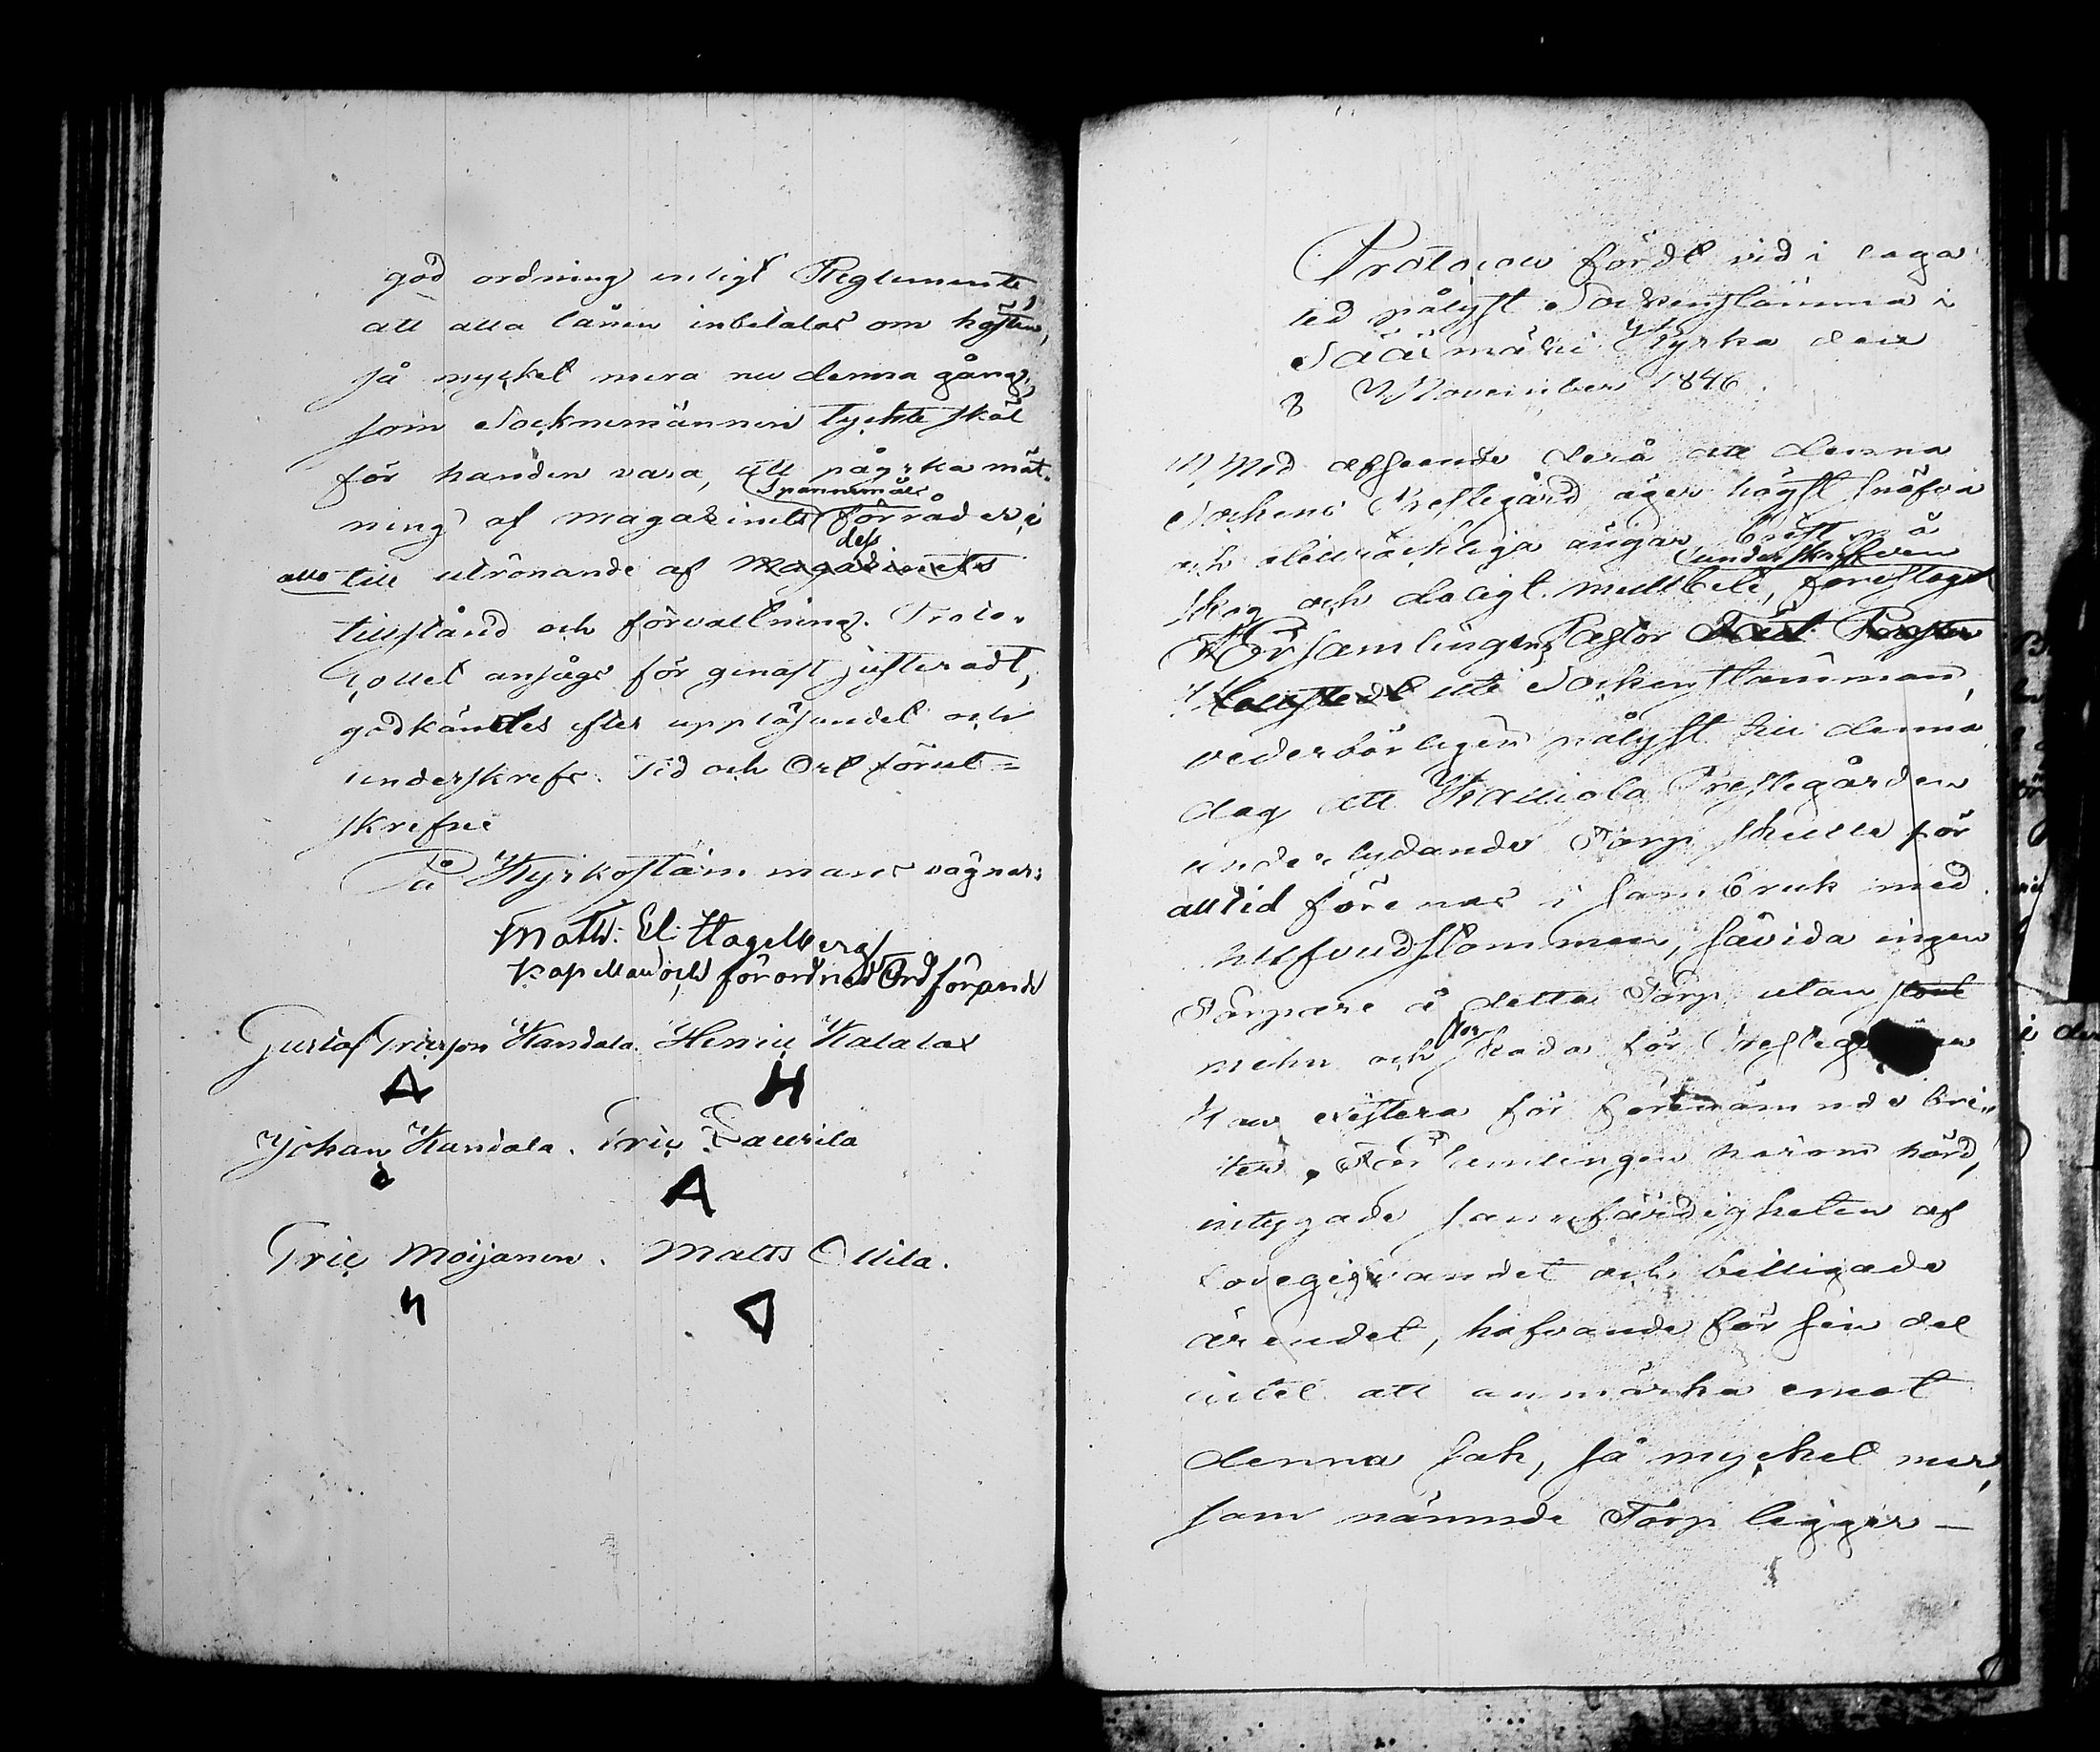 god ordning enligt Reglemente,
att alla lånen inbetalas om hösten,
så myckel mera nu denna gång,
som Socknemännen tyckte skäl
för handen vara, att påyrka mät-
Spannemåls
ning af magazinets förråder i
dess
allt till utrönande af Magazinets
tillstånd och förvaltning. Proto-
collet ansågs för genast justeradt,
godkändes efter uppläsandet och
underskrefs. Tid och Ort förut-
skrefne
På Kyrkostämmans vägnar:
Math: El: Hagelberg
Kapellan och förordnad Ordförande
Gustaf Ericsson Kandala. Henric Katalax
A H
Johan Kandala. Eric Laurila
Eric Moijanen. Matts Ollila.
Protocoll fördt vid i laga
tid pålyst Sockenstämma i
Säärmäki Kyrka den
8 November 1846.
1) Med afseende derå att denna
Sockens Prestegård äger högst snäfva
och otillräckliga ängar, brist på
underskrifven
skog och daligt mulbete, föreslogs
Församlingens Pastor
uti Sockenstämman,
vederbörligen pålyst till denna
dag att Prestegården
underlydande Torp skulle för
alltid förenas i sambruk med
hufvudstommen, såvida ingen
Torpare å detta Torp utan
mehn och stor skada för
kan existera för förenämnde bri-
ster. Församlingen härom hörd,
intygade sannfärdigheten af
föregifvandet och billigade
ärendet, hafvande för sin del
intet att anmärka emot
denna sak, så myckel mer,
som nämnde Torp ligger –